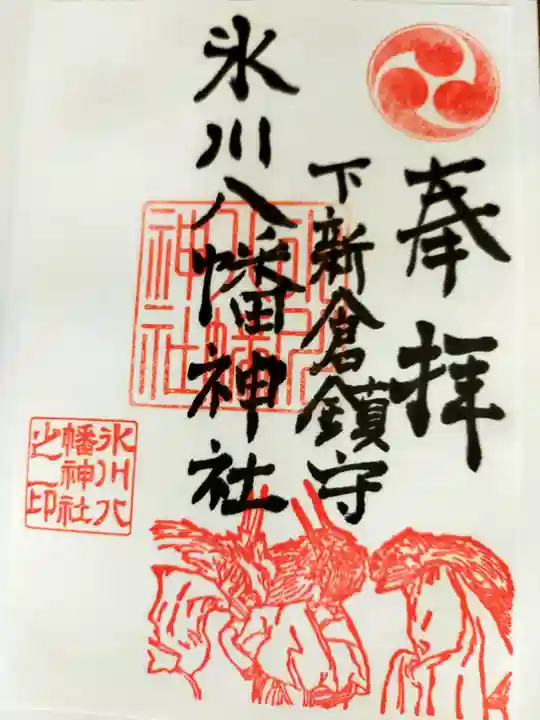 奉拝
下新倉鎮守
氷川八幡神社
氷川八
幡神社
神社
氷川八
幡神社
之印